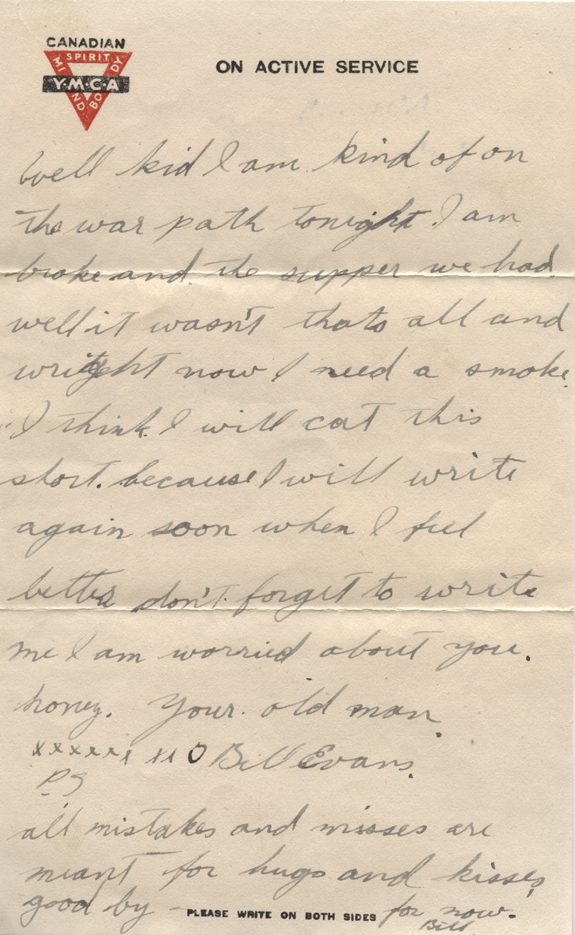 CANADIAN
SPIRIT
MIND BODY
Y·M·C·A
ON ACTIVE SERVICE
Well kid I am kind of on
the war path tonight. I am
broke and the supper we had
well it wasn't thats all and
right now I need a smoke.
I think I will cut this
short. because I will write
again soon when I feel
better don't forget to write
me I am worried about you.
honey. Your old man
xxxxxx xx O Bill Evans.
PS
all mistakes and misses are
meant for hugs and kisses,
good by for now.
PLEASE WRITE ON BOTH SIDES
Bill